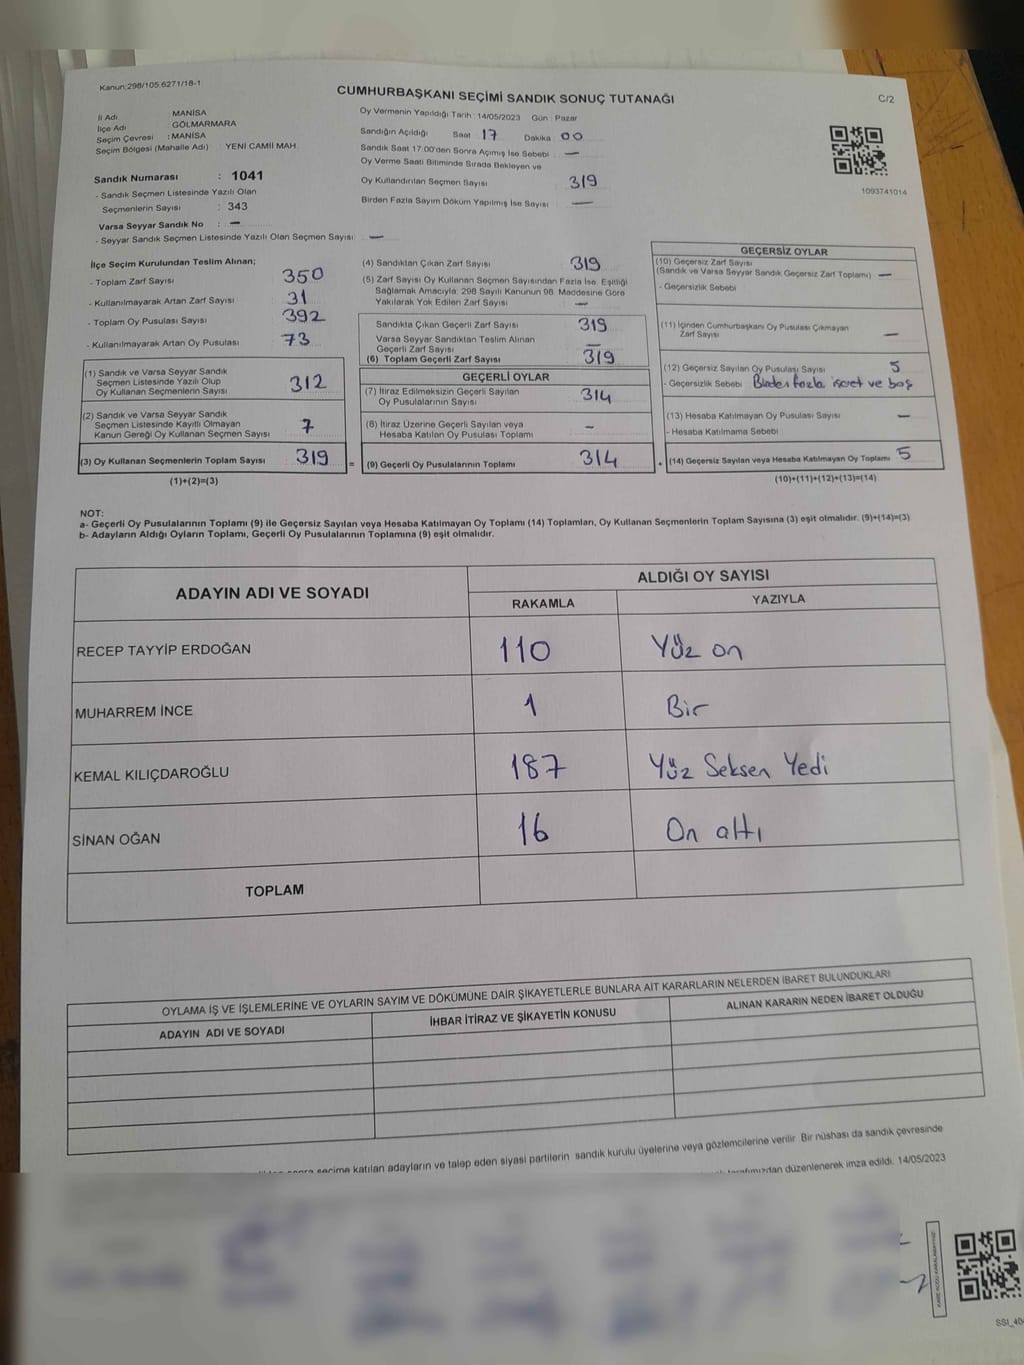 Kanun:298/105.6271/18-1
CUMHURBAŞKANI SEÇİMİ SANDIK SONUÇ TUTANAĞI
C/2
İl Adı MANİSA
İlçe Adı GÖLMARMARA
Seçim Çevresi : MANİSA
Seçim Bölgesi (Mahalle Adı) YENİ CAMİİ MAH.
Sandık Numarası : 1041
- Sandık Seçmen Listesinde Yazılı Olan
Seçmenlerin Sayısı : 343
Varsa Seyyar Sandık No : —
- Seyyar Sandık Seçmen Listesinde Yazılı Olan Seçmen Sayısı: —
Oy Vermenin Yapıldığı Tarih : 14/05/2023 Gün : Pazar
Sandığın Açıldığı Saat 17 Dakika 00
Sandık Saat 17:00'den Sonra Açımış İse Sebebi : —
Oy Verme Saati Bitiminde Sırada Bekleyen ve
Oy Kullandırılan Seçmen Sayısı 319
Birden Fazla Sayım Döküm Yapılmış İse Sayısı : —
1093741014
İlçe Seçim Kurulundan Teslim Alınan;
- Toplam Zarf Sayısı 350
- Kullanılmayarak Artan Zarf Sayısı 31
- Toplam Oy Pusulası Sayısı 392
- Kullanılmayarak Artan Oy Pusulası 73
(1) Sandık ve Varsa Seyyar Sandık
Seçmen Listesinde Yazılı Olup
Oy Kullanan Seçmenlerin Sayısı 312
(2) Sandık ve Varsa Seyyar Sandık
Seçmen Listesinde Kayıtlı Olmayan
Kanun Gereği Oy Kullanan Seçmen Sayısı 7
(3) Oy Kullanan Seçmenlerin Toplam Sayısı 319 =
(1)+(2)=(3)
(4) Sandıktan Çıkan Zarf Sayısı 319
(5) Zarf Sayısı Oy Kullanan Seçmen Sayısından Fazla İse, Eşitliği
Sağlamak Amacıyla; 298 Sayılı Kanunun 98. Maddesine Göre
Yakılarak Yok Edilen Zarf Sayısı —
Sandıkta Çıkan Geçerli Zarf Sayısı 319
Varsa Seyyar Sandıktan Teslim Alınan
Geçerli Zarf Sayısı —
(6) Toplam Geçerli Zarf Sayısı 319
GEÇERLİ OYLAR
(7) İtiraz Edilmeksizin Geçerli Sayılan
Oy Pusulalarının Sayısı 314
(8) İtiraz Üzerine Geçerli Sayılan veya
Hesaba Katılan Oy Pusulası Toplamı -
(9) Geçerli Oy Pusulalarının Toplamı 314 +
GEÇERSİZ OYLAR
(10) Geçersiz Zarf Sayısı
(Sandık ve Varsa Seyyar Sandık Geçersiz Zarf Toplamı) —
- Geçersizlik Sebebi
(11) İçinden Cumhurbaşkanı Oy Pusulası Çıkmayan
Zarf Sayısı —
(12) Geçersiz Sayılan Oy Pusulası Sayısı 5
- Geçersizlik Sebebi Birden fazla işaret ve boş
(13) Hesaba Katılmayan Oy Pusulası Sayısı —
- Hesaba Katılmama Sebebi
(14) Geçersiz Sayılan veya Hesaba Katılmayan Oy Toplamı 5
(10)+(11)+(12)+(13)=(14)
NOT:
a- Geçerli Oy Pusulalarının Toplamı (9) ile Geçersiz Sayılan veya Hesaba Katılmayan Oy Toplamı (14) Toplamları, Oy Kullanan Seçmenlerin Toplam Sayısına (3) eşit olmalıdır. (9)+(14)=(3)
b- Adayların Aldığı Oyların Toplamı, Geçerli Oy Pusulalarının Toplamına (9) eşit olmalıdır.
ADAYIN ADI VE SOYADI
ALDIĞI OY SAYISI
RAKAMLA YAZIYLA
RECEP TAYYİP ERDOĞAN 110 Yüz on
MUHARREM İNCE 1 Bir
KEMAL KILIÇDAROĞLU 187 Yüz Seksen Yedi
SİNAN OĞAN 16 On altı
TOPLAM
OYLAMA İŞ VE İŞLEMLERİNE VE OYLARIN SAYIM VE DÖKÜMÜNE DAİR ŞİKAYETLERLE BUNLARA AİT KARARLARIN NELERDEN İBARET BULUNDUKLARI
ADAYIN ADI VE SOYADI İHBAR İTİRAZ VE ŞİKAYETİN KONUSU ALINAN KARARIN NEDEN İBARET OLDUĞU
sonra seçime katılan adayların ve talep eden siyasi partilerin sandık kurulu üyelerine veya gözlemcilerine verilir. Bir nüshası da sandık çevresinde
tarafımızdan düzenlenerek imza edildi. 14/05/2023